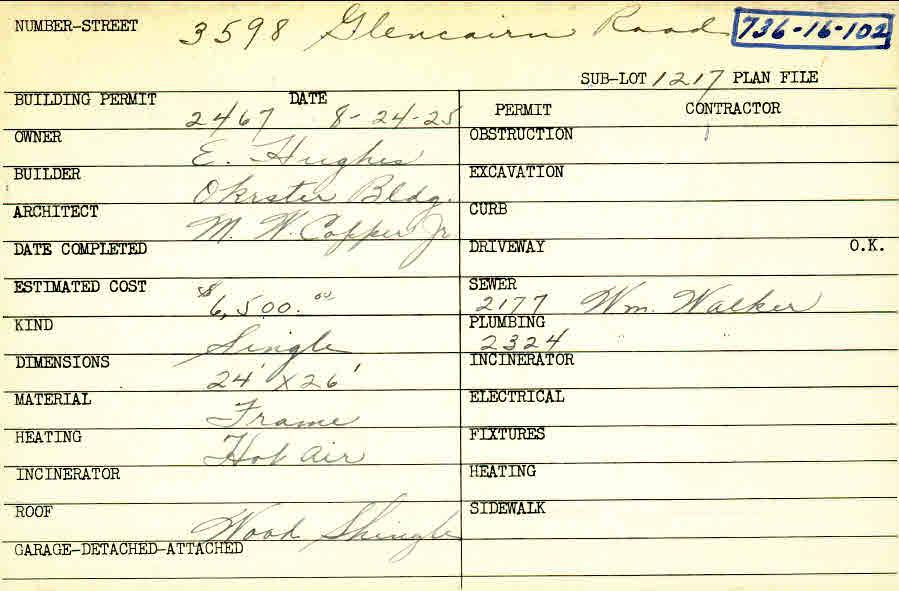 NUMBER-STREET 3598 Glencairn Road 736-16-102
SUB-LOT 1217 PLAN FILE
BUILDING PERMIT 2467 DATE 8-24-25
PERMIT CONTRACTOR
OWNER E. Hughes
OBSTRUCTION
BUILDER Okrster Bldg.
EXCAVATION
ARCHITECT M. W. Copper Jr.
CURB
DATE COMPLETED
DRIVEWAY O.K.
ESTIMATED COST $6,500.00
SEWER 2177 Wm. Walker
KIND Single
PLUMBING 2324 " "
DIMENSIONS 24' X 26'
INCINERATOR
MATERIAL Frame
ELECTRICAL
HEATING Hot air
FIXTURES
INCINERATOR
HEATING
ROOF Wood Shingle
SIDEWALK
GARAGE-DETACHED-ATTACHED